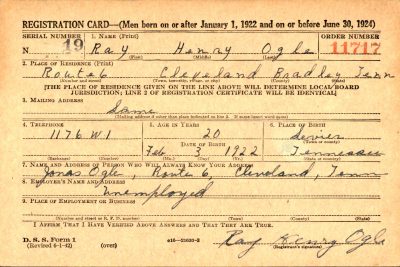 REGISTRATION CARD—(Men born on or after January 1, 1922 and on or before June 30, 1924)
SERIAL NUMBER 1. NAME (Print) ORDER NUMBER
N 19 Ray Henry Ogle 11717
(First) (Middle) (Last)
2. PLACE OF RESIDENCE (Print)
Route 6 Cleveland Bradley Tenn
(Number and street) (Town, township, village, or city) (County) (State)
[THE PLACE OF RESIDENCE GIVEN ON THE LINE ABOVE WILL DETERMINE LOCAL BOARD
JURISDICTION; LINE 2 OF REGISTRATION CERTIFICATE WILL BE IDENTICAL]
3. MAILING ADDRESS
Same
(Mailing address if other than place indicated on line 2. If same insert word same)
4. TELEPHONE 5. AGE IN YEARS 6. PLACE OF BIRTH
1176 W1 20 Sevier
DATE OF BIRTH (Town or county)
Feb 3 1922 Tennessee
(Mo.) (Day) (Yr.) (State or country)
7. NAME AND ADDRESS OF PERSON WHO WILL ALWAYS KNOW YOUR ADDRESS
Jonas Ogle, Route 6, Cleveland, Tenn
8. EMPLOYER'S NAME AND ADDRESS
Unemployed
9. PLACE OF EMPLOYMENT OR BUSINESS
(Number and street or R. F. D. number) (Town) (County) (State)
I AFFIRM THAT I HAVE VERIFIED ABOVE ANSWERS AND THAT THEY ARE TRUE.
D. S. S. Form 1
(Revised 6-1-42) (over) Ray Henry Ogle
(Registrant's signature)